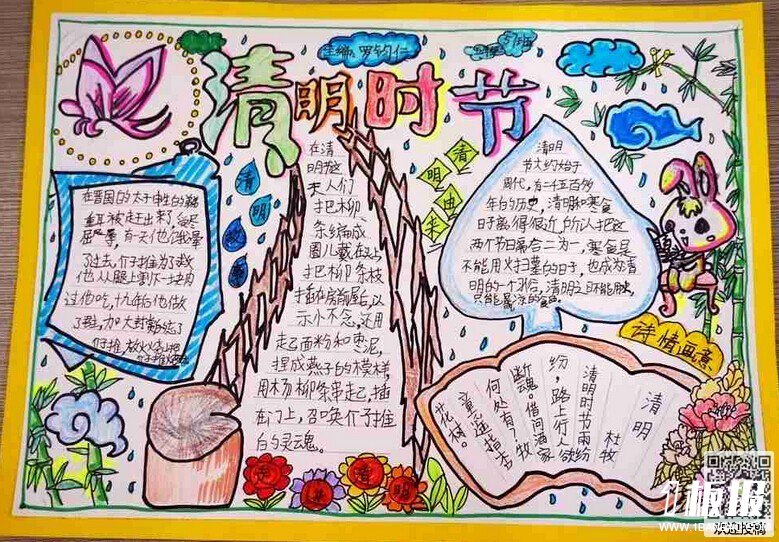 主编:罗钧仁
清明时节
清
明
故
事
在晋国的太子申生的弟
重耳被赶出来了受尽
屈辱,有一天他们饿晕
了过去,介子推为了救
他从腿上割下一块肉
让他吃,十九年后他做
了君主,加大封勤给了
在清
明节这
天人们
把柳
条编成
圈儿戴在头上
把柳条枝
插在房前屋后,以
示小不念,还用
起面粉和枣泥,
捏成燕子的模样,
用杨柳条串起,插
在门上,召唤介子推
的灵魂。
清
明
由
来
清明
节大约始于
周代,有二千五百多
年的历史,清明和寒食
日子离得很近,所以把这
两个节日萘合二为一,寒食是
不能用火扫墓的日子,也成为清
明的一个习俗,清明之日不能用火,
只能
诗情画意
清明
杜牧
清明时节雨纷
纷,路上行人欲
断魂。借问酒家
何处有?牧
童遥指杏
花村。
走
进
清
明
板报
WWW.1BANBAO.COM
欢迎投稿